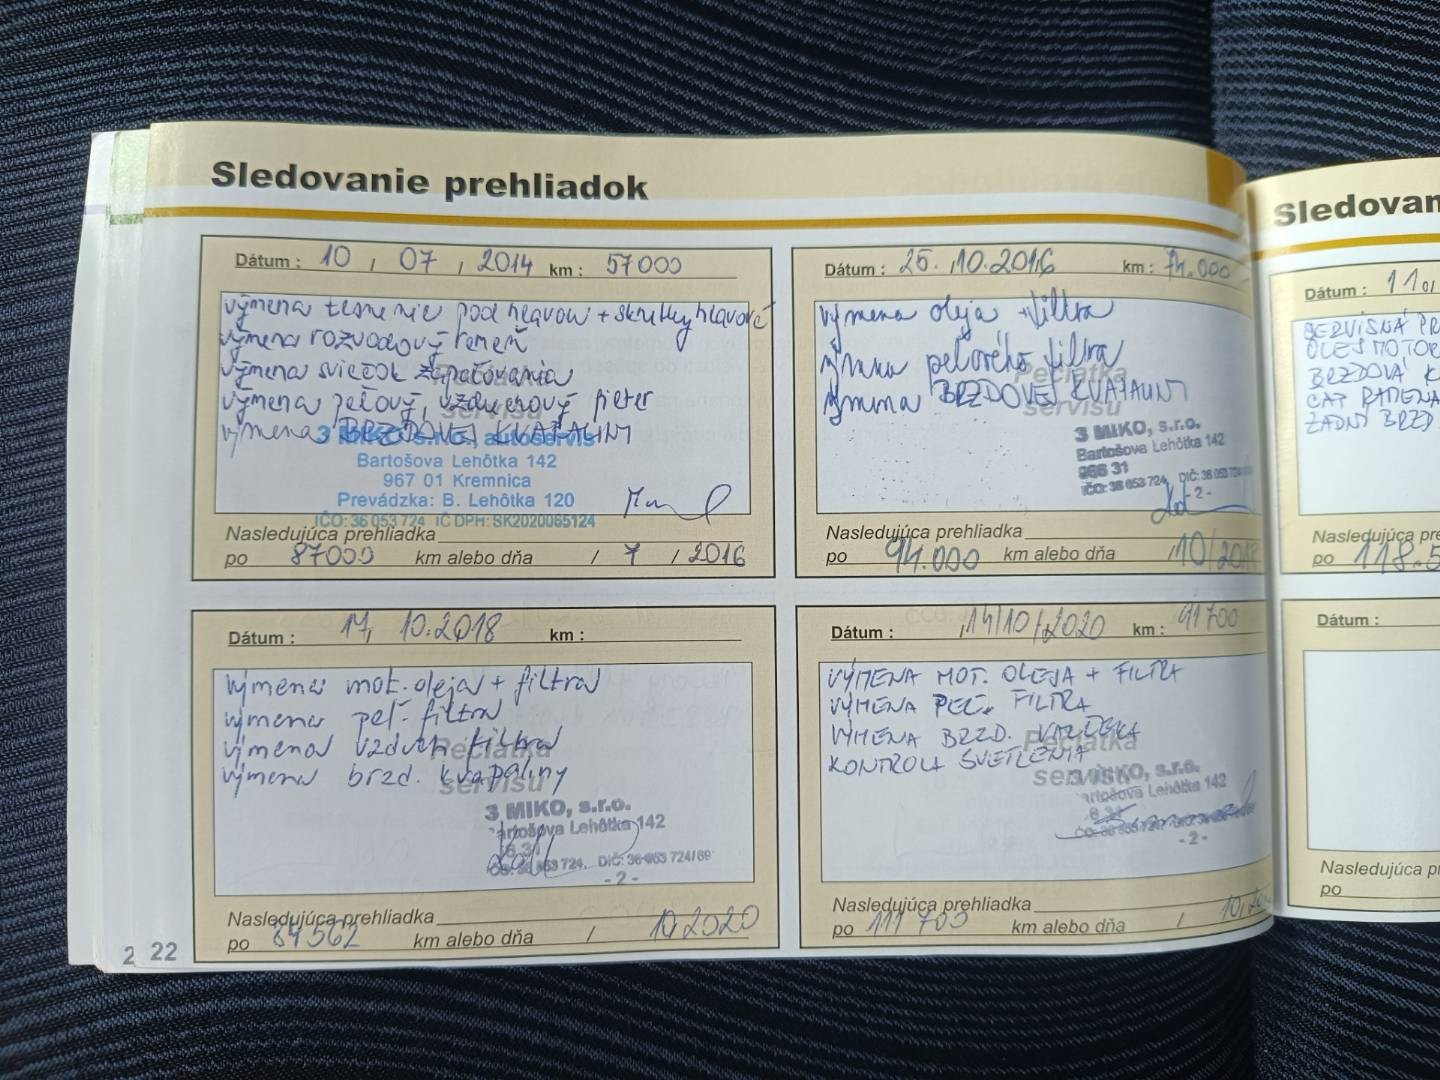 Sledovanie prehliadok
Dátum : 10 , 07 , 2014 km : 57000
výmena tesnenie pod hlavou + skrutky hlavové
výmena rozvodový remeň
výmena sviečok zapaľovania
výmena peľový, vzduchový filter
výmena BRZDOVEJ KVAPALINY
Pečiatka
servisu
3 MIKO, s.r.o., autoservis
Bartošova Lehôtka 142
967 01 Kremnica
Prevádzka: B. Lehôtka 120
IČO: 36 053 724 IČ DPH: SK2020065124
Nasledujúca prehliadka
po 87000 km alebo dňa / 7 / 2016
Dátum : 25. 10. 2016 km : 74.000
výmena oleja + filtra
výmena peľového filtra
výmena BRZDOVEJ KVAPALINY
Pečiatka
servisu
3 MIKO, s.r.o.
Bartošova Lehôtka 142
966 31
IČO: 36 053 724, DIČ: 36 053 724
- 2 -
Nasledujúca prehliadka
po 94.000 km alebo dňa 10/201
Dátum : 17, 10. 2018 km :
výmena mot. oleja + filtra
výmena peľ. filtra
výmena vzduch filtra
výmena brzd. kvapaliny
Pečiatka
servisu
3 MIKO, s.r.o.
artošova Lehôtka 142
6 31
ČO: 36 053 724, DIČ: 36 053 724/69
- 2 -
Nasledujúca prehliadka
po 84562 km alebo dňa / 10.2020
Dátum : 14/10/2020 km : 91700
VÝMENA MOT. OLEJA + FILTRA
VÝMENA PEĽ. FILTRA
VÝMENA BRZD.
KONTROLA SVETLENIA
Pečiatka
servisu
3 MIKO, s.r.o.
artošova Lehôtka 142
- 2 -
Nasledujúca prehliadka
po 111 700 km alebo dňa / 10.20
2 22
Sledovan
Dátum : 11
SERVISNÁ PR
OLEJ MOTOR
BRZDOVÁ K
ZADNÉ BRZD
Nasledujúca pre
po 118.5
Dátum :
Nasledujúca pr
po